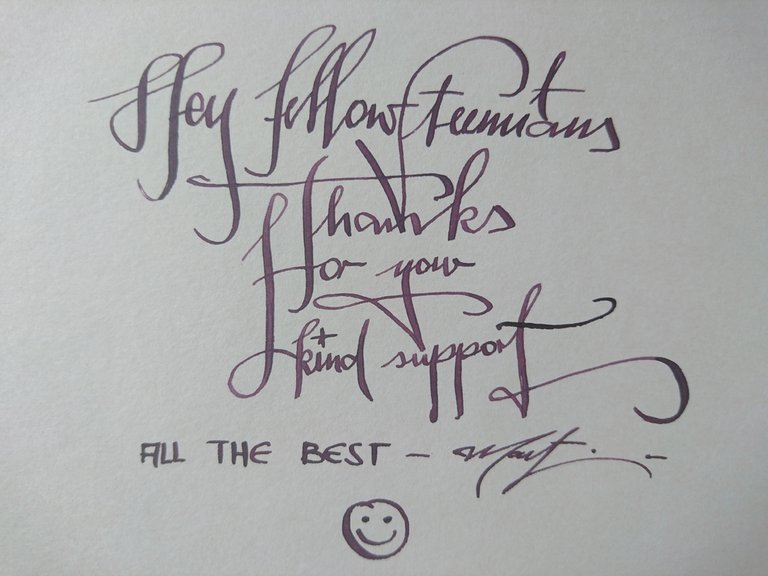 Hey fellow Steemians
Thanks
for your
kind support
ALL THE BEST -